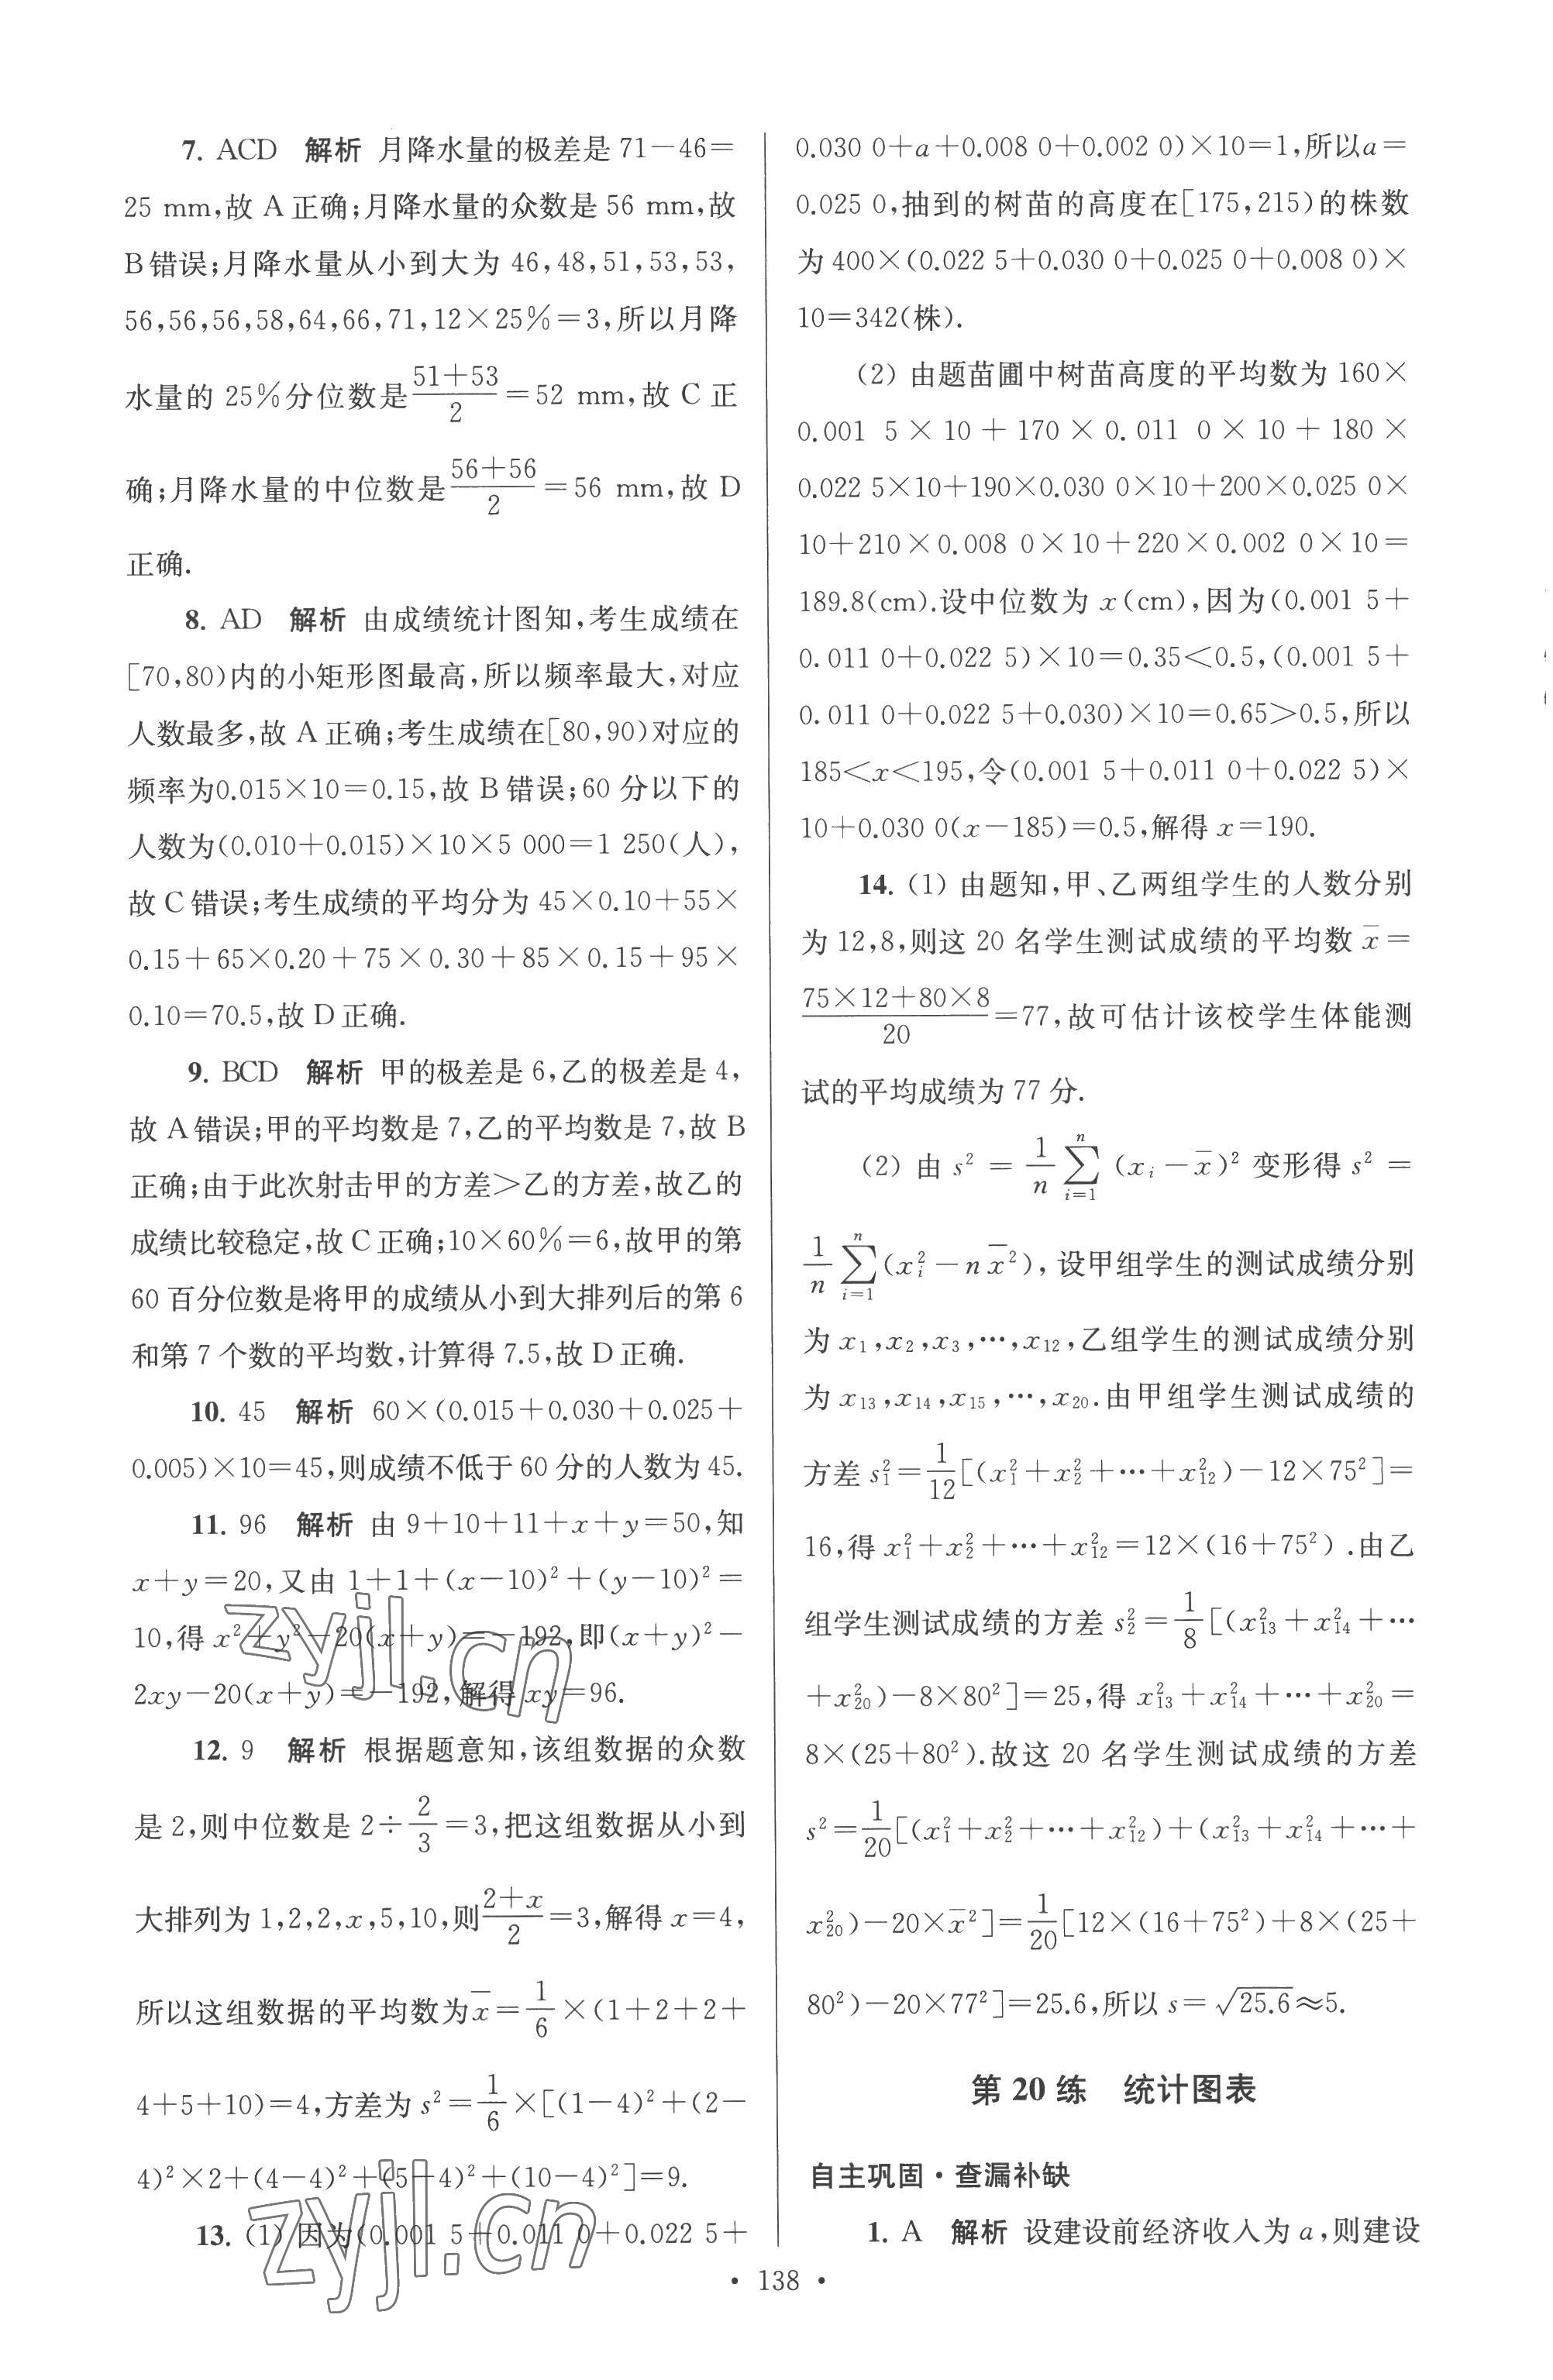 7. ACD 解析 月降水量的极差是 71－46＝
25 mm,故 A 正确;月降水量的众数是 56 mm,故
B 错误;月降水量从小到大为 46,48,51,53,53,
56,56,56,58,64,66,71,12×25%＝3,所以月降
水量的 25%分位数是\frac{51+53}{2}＝52 mm,故 C 正
确;月降水量的中位数是\frac{56+56}{2}＝56 mm,故 D
正确.
8. AD 解析 由成绩统计图知,考生成绩在
[70,80)内的小矩形图最高,所以频率最大,对应
人数最多,故 A 正确;考生成绩在[80,90)对应的
频率为0.015×10＝0.15,故 B 错误;60 分以下的
人数为(0.010＋0.015)×10×5 000＝1 250(人),
故 C 错误;考生成绩的平均分为 45×0.10＋55×
0.15＋65×0.20＋75×0.30＋85×0.15＋95×
0.10＝70.5,故 D 正确.
9. BCD 解析 甲的极差是 6,乙的极差是 4,
故 A 错误;甲的平均数是 7,乙的平均数是 7,故 B
正确;由于此次射击甲的方差＞乙的方差,故乙的
成绩比较稳定,故 C 正确;10×60%＝6,故甲的第
60 百分位数是将甲的成绩从小到大排列后的第 6
和第 7 个数的平均数,计算得 7.5,故 D 正确.
10. 45 解析 60×(0.015＋0.030＋0.025＋
0.005)×10＝45,则成绩不低于 60 分的人数为 45.
11. 96 解析 由 9＋10＋11＋x＋y＝50,知
x＋y＝20,又由 1＋1＋(x－10)²＋(y－10)²＝
10,得 x²＋y²－20(x＋y)＝－192,即(x＋y)²－
2xy－20(x＋y)＝－192,解得 xy＝96.
12. 9 解析 根据题意知,该组数据的众数
是 2,则中位数是 2÷\frac{2}{3}＝3,把这组数据从小到
大排列为 1,2,2,x,5,10,则\frac{2+x}{2}＝3,解得 x＝4,
所以这组数据的平均数为x̄＝\frac{1}{6}×(1＋2＋2＋
4＋5＋10)＝4,方差为 s²＝\frac{1}{6}×[(1－4)²＋(2－
4)²×2＋(4－4)²＋(5－4)²＋(10－4)²]＝9.
13. (1) 因为(0.001 5＋0.011 0＋0.022 5＋
0.030 0＋a＋0.008 0＋0.002 0)×10＝1,所以a＝
0.025 0,抽到的树苗的高度在[175,215)的株数
为 400×(0.022 5＋0.030 0＋0.025 0＋0.008 0)×
10＝342(株).
(2) 由题苗圃中树苗高度的平均数为 160×
0.001 5×10＋170×0.011 0×10＋180×
0.022 5×10＋190×0.030 0×10＋200×0.025 0×
10＋210×0.008 0×10＋220×0.002 0×10＝
189.8(cm).设中位数为 x(cm),因为(0.001 5＋
0.011 0＋0.022 5)×10＝0.35＜0.5,(0.001 5＋
0.011 0＋0.022 5＋0.030)×10＝0.65＞0.5,所以
185＜x＜195,令(0.001 5＋0.011 0＋0.022 5)×
10＋0.030 0(x－185)＝0.5,解得 x＝190.
14. (1) 由题知,甲、乙两组学生的人数分别
为 12,8,则这 20 名学生测试成绩的平均数 x̄＝
\frac{75×12+80×8}{20}＝77,故可估计该校学生体能测
试的平均成绩为 77 分.
(2) 由 s²＝\frac{1}{n}\sum_{i=1}^{n}(x_i－x̄)² 变形得 s²＝
\frac{1}{n}\sum_{i=1}^{n}(x_i²－n x̄²),设甲组学生的测试成绩分别
为 x₁,x₂,x₃,…,x₁₂,乙组学生的测试成绩分别
为 x₁₃,x₁₄,x₁₅,…,x₂₀.由甲组学生测试成绩的
方差 s₁²＝\frac{1}{12}[(x₁²＋x₂²＋…＋x₁₂²)－12×75²]＝
16,得 x₁²＋x₂²＋…＋x₁₂²＝12×(16＋75²).由乙
组学生测试成绩的方差 s₂²＝\frac{1}{8}[(x₁₃²＋x₁₄²＋…
＋x₂₀²)－8×80²]＝25,得 x₁₃²＋x₁₄²＋…＋x₂₀²＝
8×(25＋80²).故这 20 名学生测试成绩的方差
s²＝\frac{1}{20}[(x₁²＋x₂²＋…＋x₁₂²)＋(x₁₃²＋x₁₄²＋…＋
x₂₀²)－20×x̄²]＝\frac{1}{20}[12×(16＋75²)＋8×(25＋
80²)－20×77²]＝25.6,所以 s＝√25.6≈5.
第 20 练 统计图表
自主巩固·查漏补缺
1. A 解析 设建设前经济收入为 a,则建设
• 138 •
zyjl.cn
zyjl.cn